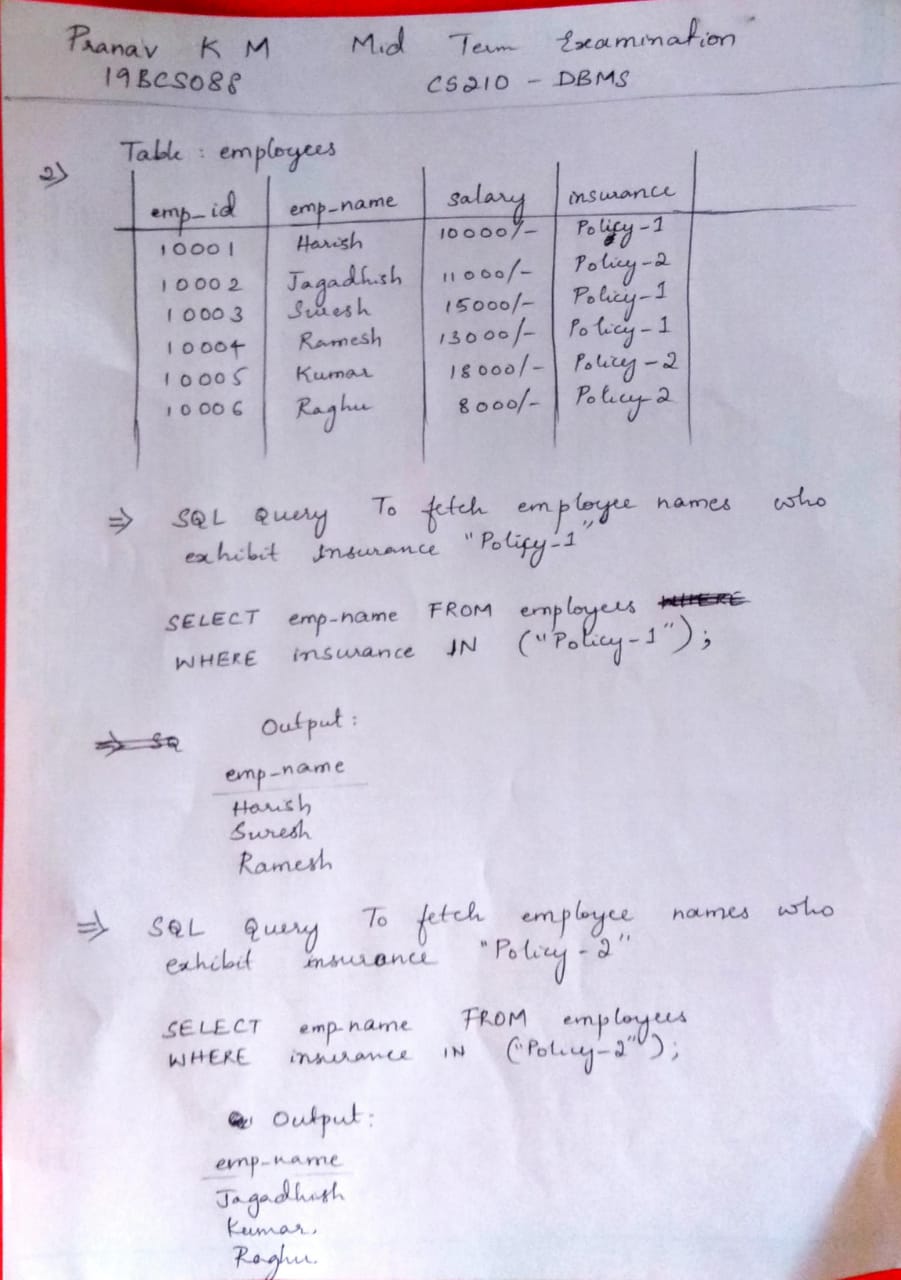 Pranav K M Mid Term Examination
19BCS088 CS210 - DBMS
2) Table : employees
emp_id emp-name salary insurance
10001 Harish 10000/- Policy-1
10002 Jagadhish 11000/- Policy-2
10003 Suresh 15000/- Policy-1
10004 Ramesh 13000/- Policy-1
10005 Kumar 18000/- Policy-2
10006 Raghu 8000/- Policy-2
⇒ SQL Query To fetch employee names who
exhibit insurance "Policy-1"
SELECT emp-name FROM employees WHERE
WHERE insurance IN ("Policy-1");
⇒ SQ Output:
emp-name
Harish
Suresh
Ramesh
⇒ SQL Query To fetch employee names who
exhibit insurance "Policy-2"
SELECT emp-name FROM employees
WHERE insurance IN ("Policy-2");
Output:
emp-name
Jagadhish
Kumar.
Raghu.